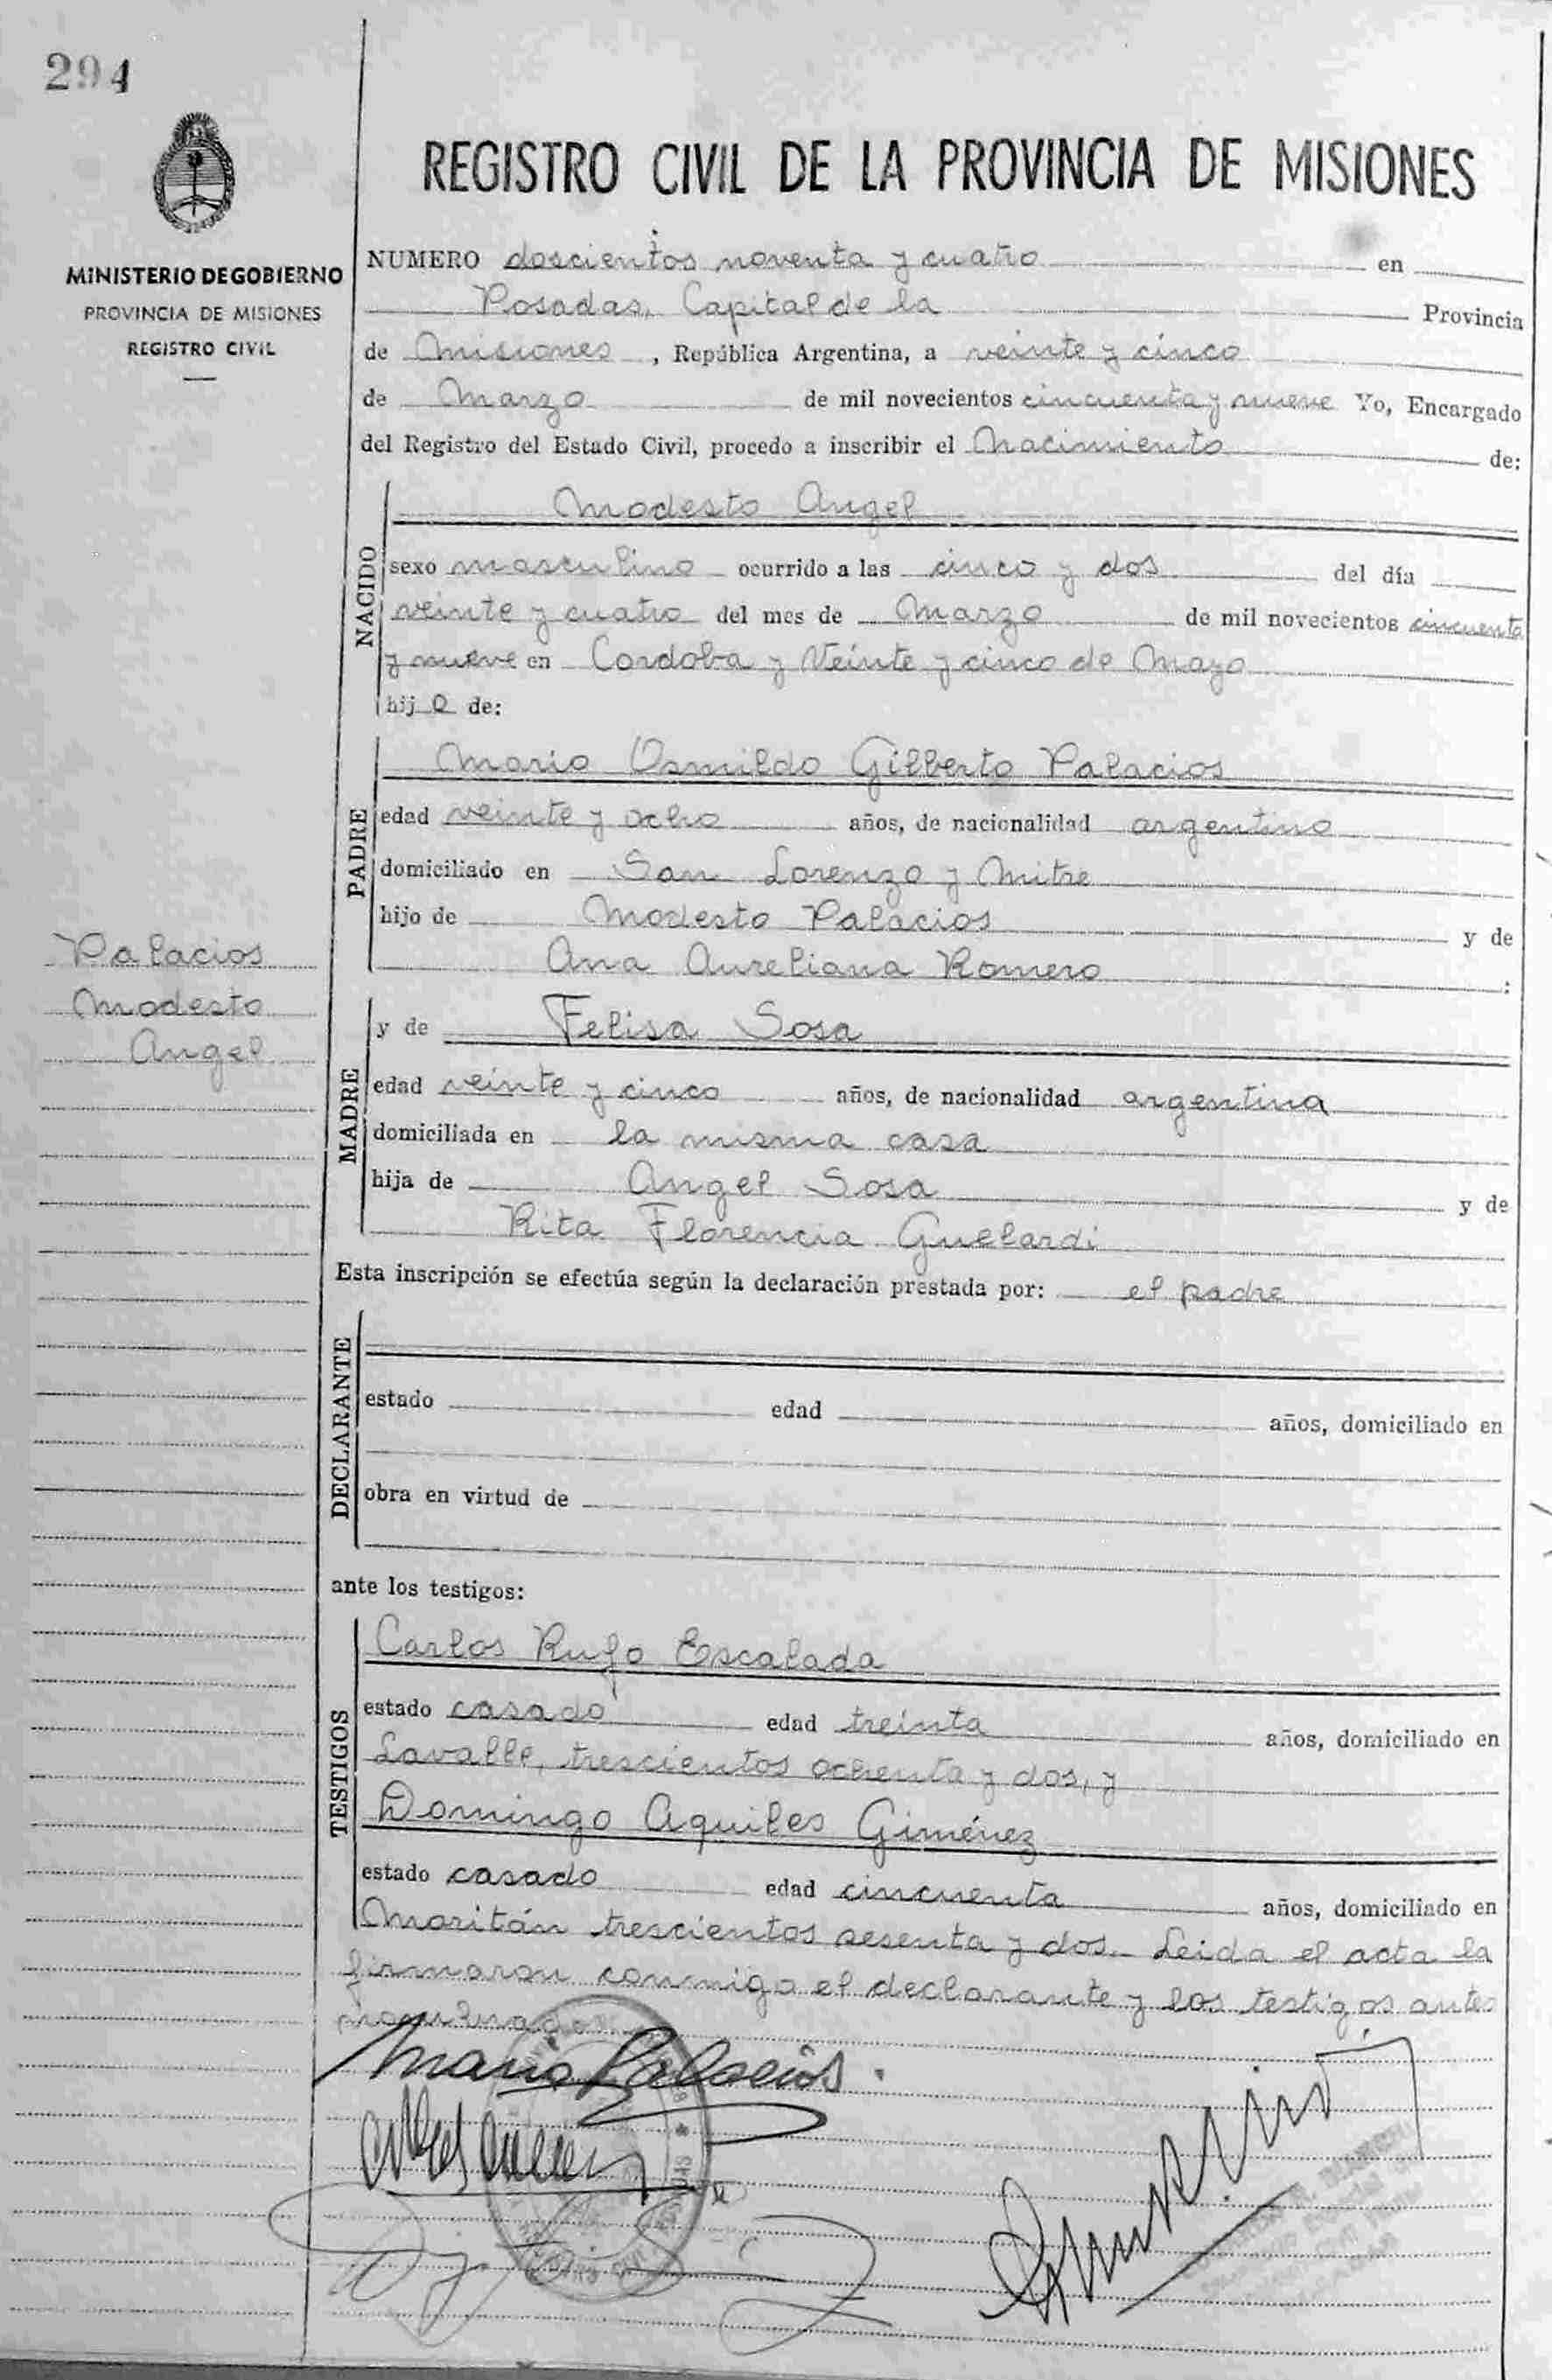 294
MINISTERIO DE GOBIERNO
PROVINCIA DE MISIONES
REGISTRO CIVIL
REGISTRO CIVIL DE LA PROVINCIA DE MISIONES
NUMERO doscientos noventa y cuatro en
Posadas, Capital de la Provincia
de Misiones, República Argentina, a veinte y cinco
de Marzo de mil novecientos cincuenta y nueve Yo, Encargado
del Registro del Estado Civil, procedo a inscribir el Nacimiento de:
NACIDO
Modesto Angel
sexo masculino ocurrido a las cinco y dos del día
veinte y cuatro del mes de Marzo de mil novecientos cincuenta
y nueve en Cordoba y Veinte y cinco de Mayo
hijo de:
PADRE
Mario Osmildo Gilberto Palacios
edad veinte y ocho años, de nacionalidad argentino
domiciliado en San Lorenzo y Mitre
hijo de Modesto Palacios y de
Ana Aureliana Romero :
Palacios
Modesto
Angel
MADRE
y de Felisa Sosa
edad veinte y cinco años, de nacionalidad argentina
domiciliada en la misma casa
hija de Angel Sosa y de
Rita Florencia Guelardi
Esta inscripción se efectúa según la declaración prestada por: el padre
DECLARANTE
estado edad años, domiciliado en
obra en virtud de
ante los testigos:
TESTIGOS
Carlos Rufo Escalada
estado casado edad treinta años, domiciliado en
Lavalle, trescientos ochenta y dos, y
Domingo Aquiles Giménez
estado casado edad cincuenta años, domiciliado en
Maritán trescientos sesenta y dos. Leida el acta la
firmaron conmigo el declarante y los testigos antes
Mario Palacios.